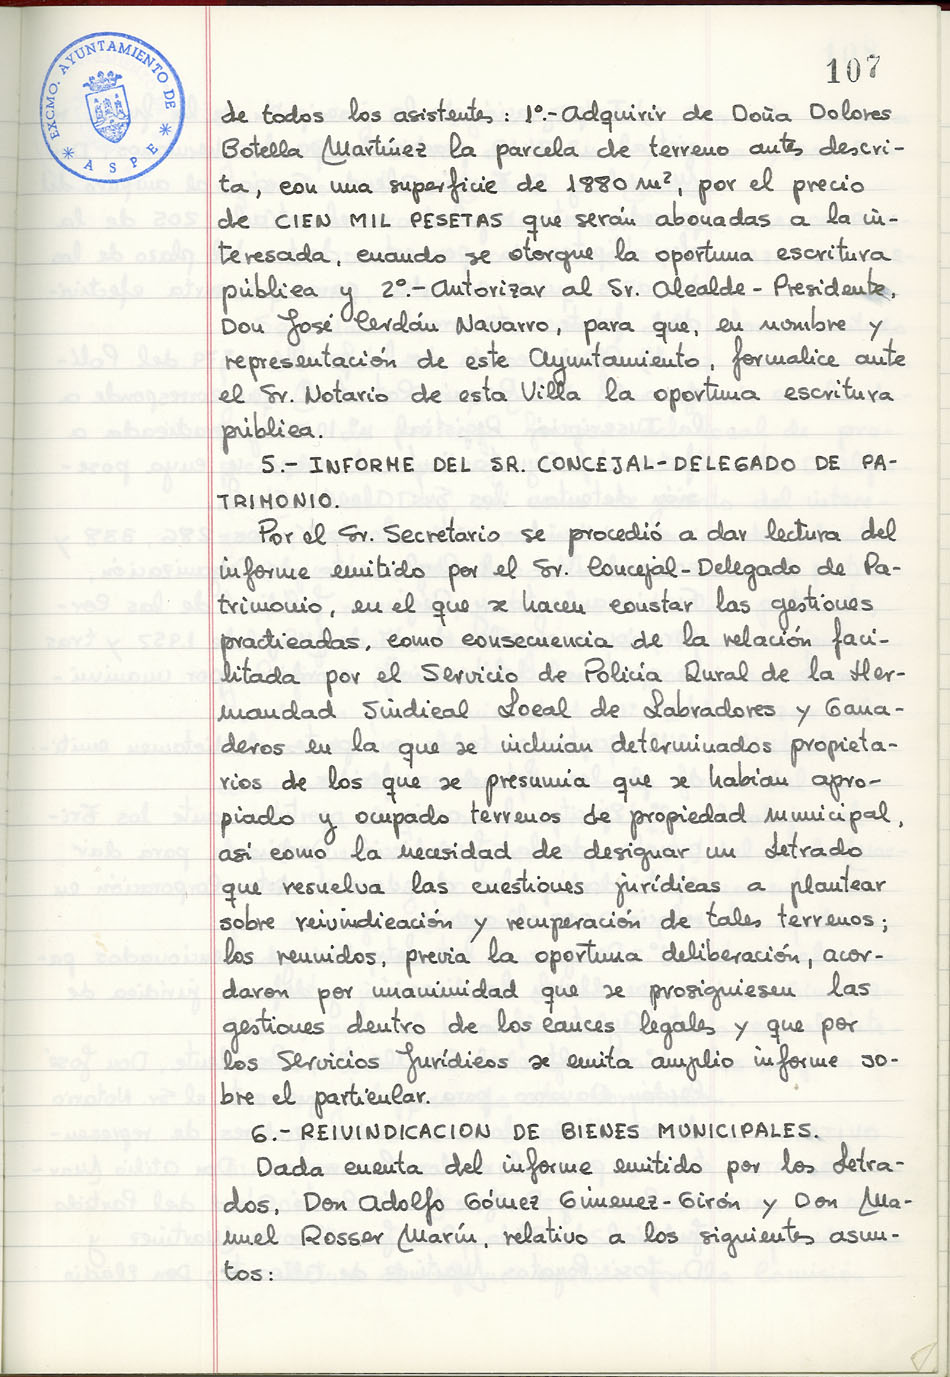 EXCMO. AYUNTAMIENTO DE
* ASPE *
107
de todos los asistentes: 1º.- Adquirir de Doña Dolores
Botella Martínez la parcela de terreno antes descri-
ta, con una superficie de 1880 m², por el precio
de CIEN MIL PESETAS que serán abonadas a la in-
teresada, cuando se otorgue la oportuna escritura
pública y 2º.- Autorizar al Sr. Alcalde-Presidente,
Don José Cerdán Navarro, para que, en nombre y
representación de este Ayuntamiento, formalice ante
el Sr. Notario de esta Villa la oportuna escritura
pública.
5.- INFORME DEL SR. CONCEJAL-DELEGADO DE PA-
TRIMONIO.
Por el Sr. Secretario se procedió a dar lectura del
informe emitido por el Sr. Concejal-Delegado de Pa-
trimonio, en el que se hacen constar las gestiones
practicadas, como consecuencia de la relación faci-
litada por el Servicio de Policía Rural de la Her-
mandad Sindical Local de Labradores y Gana-
deros en la que se incluían determinados propieta-
rios de los que se presumía que se habían apro-
piado y ocupado terrenos de propiedad municipal,
así como la necesidad de designar un Letrado
que resuelva las cuestiones jurídicas a plantear
sobre reivindicación y recuperación de tales terrenos;
los reunidos, previa la oportuna deliberación, acor-
daron por unanimidad que se prosiguiesen las
gestiones dentro de los cauces legales y que por
los Servicios Jurídicos se emita amplio informe so-
bre el particular.
6.- REIVINDICACION DE BIENES MUNICIPALES.
Dada cuenta del informe emitido por los Letra-
dos, Don Adolfo Gómez Gimenez-Girón y Don Ma-
nuel Rosser Marín, relativo a los siguientes asun-
tos: